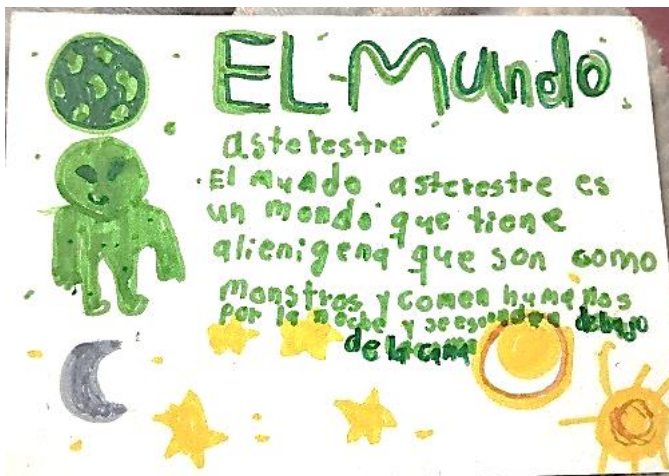 EL Mundo
asterestre
El mundo asterestre es
un mondo que tiene
alienigena que son como
monstros y comen humanos
por la noche y se esconden debajo
de la cama